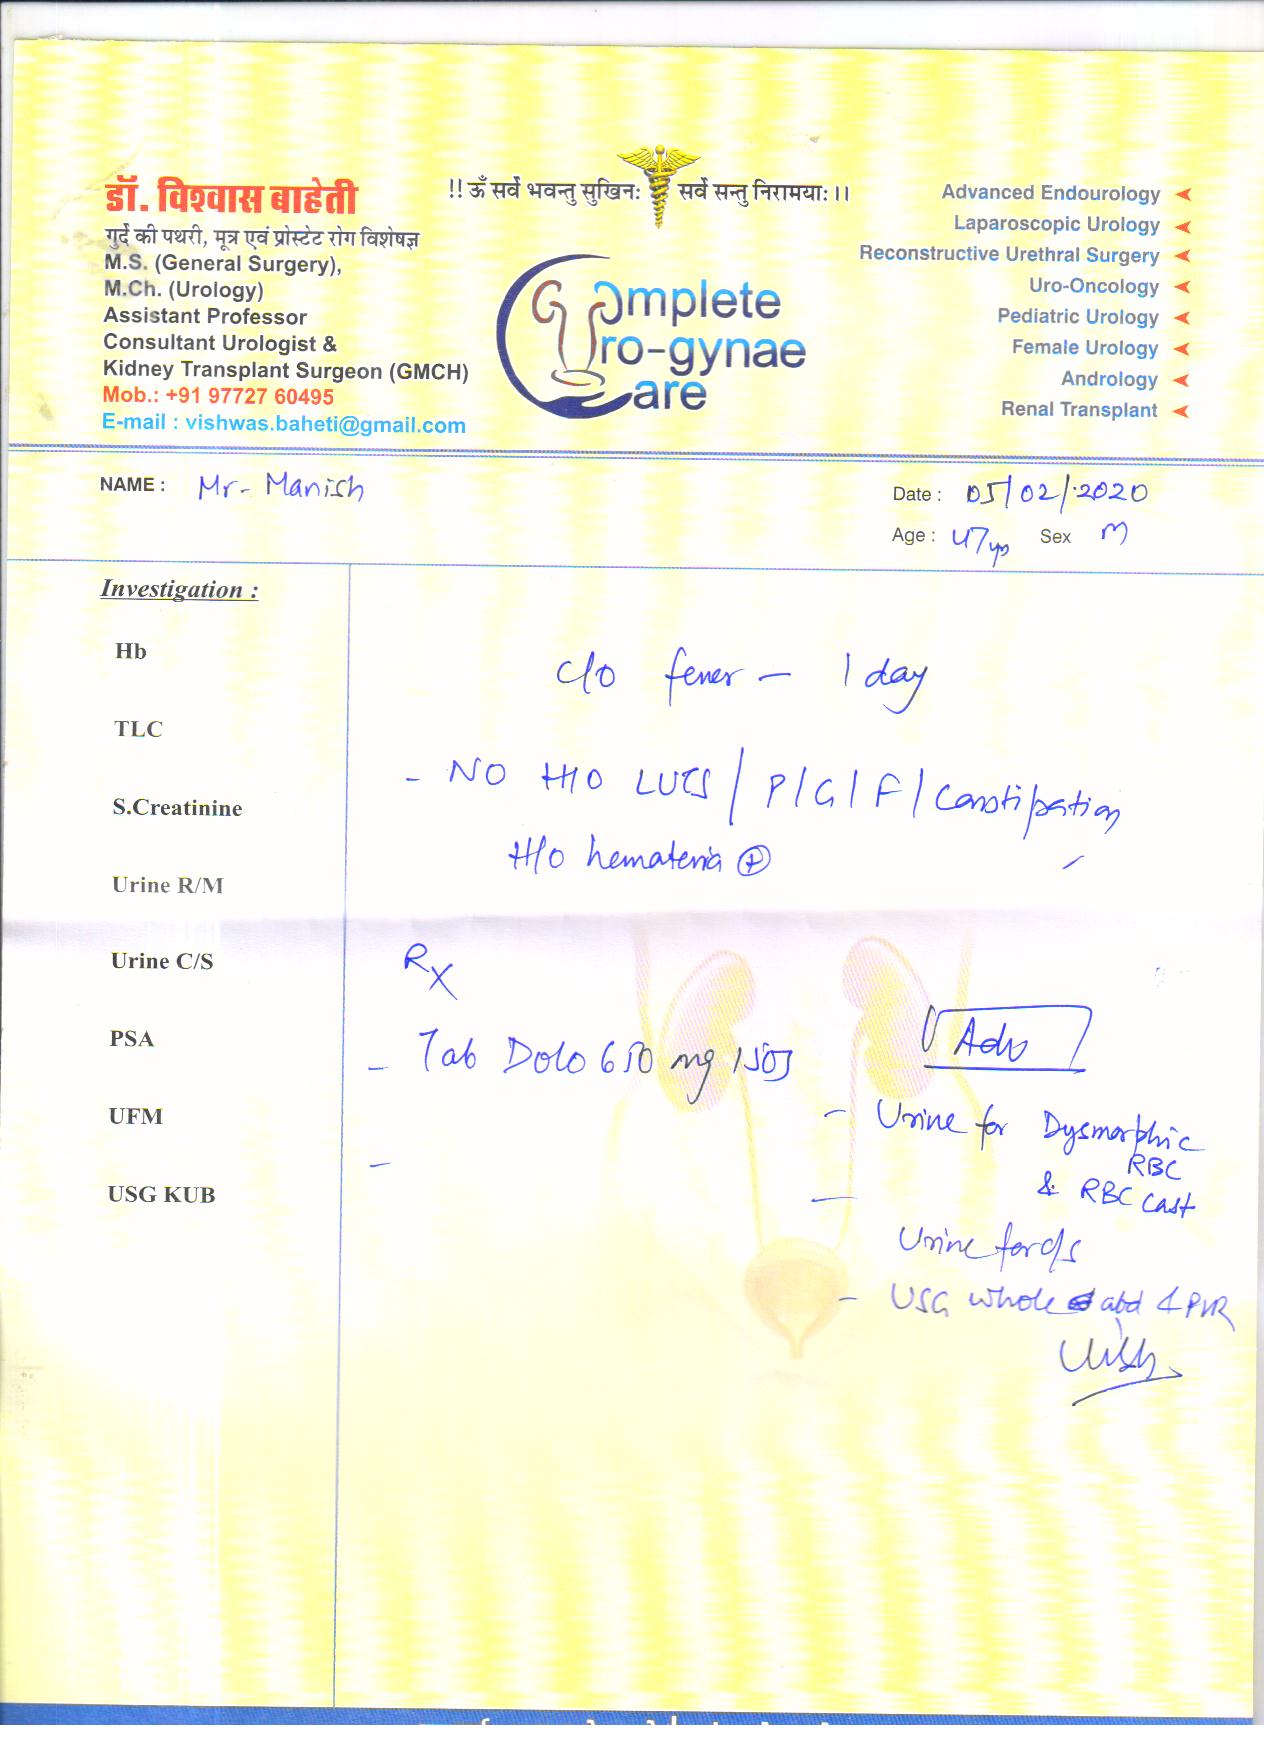 डॉ. विश्वास बाहेती
गुर्दे की पथरी, मूत्र एवं प्रोस्टेट रोग विशेषज्ञ
M.S. (General Surgery),
M.Ch. (Urology)
Assistant Professor
Consultant Urologist &
Kidney Transplant Surgeon (GMCH)
Mob.: +91 97727 60495
E-mail : vishwas.baheti@gmail.com
!! ॐ सर्वे भवन्तु सुखिनः सर्वे सन्तु निरामयाः ।।
Complete
Uro-gynae
Care
Advanced Endourology
Laparoscopic Urology
Reconstructive Urethral Surgery
Uro-Oncology
Pediatric Urology
Female Urology
Andrology
Renal Transplant
NAME : Mr- Manish
Date : 05/02/2020
Age : 47 yrs Sex M
Investigation :
Hb
TLC
S.Creatinine
Urine R/M
Urine C/S
PSA
UFM
USG KUB
C/O fever - 1 day
- NO H/O LUTS / P/G/F/ Constipation
H/O hematuria ⊕
Rx
- Tab Dolo 650 mg
Adv
- Urine for Dysmorphic
RBC
& RBC cast
- Urine for c/s
- USG whole abd & PVR